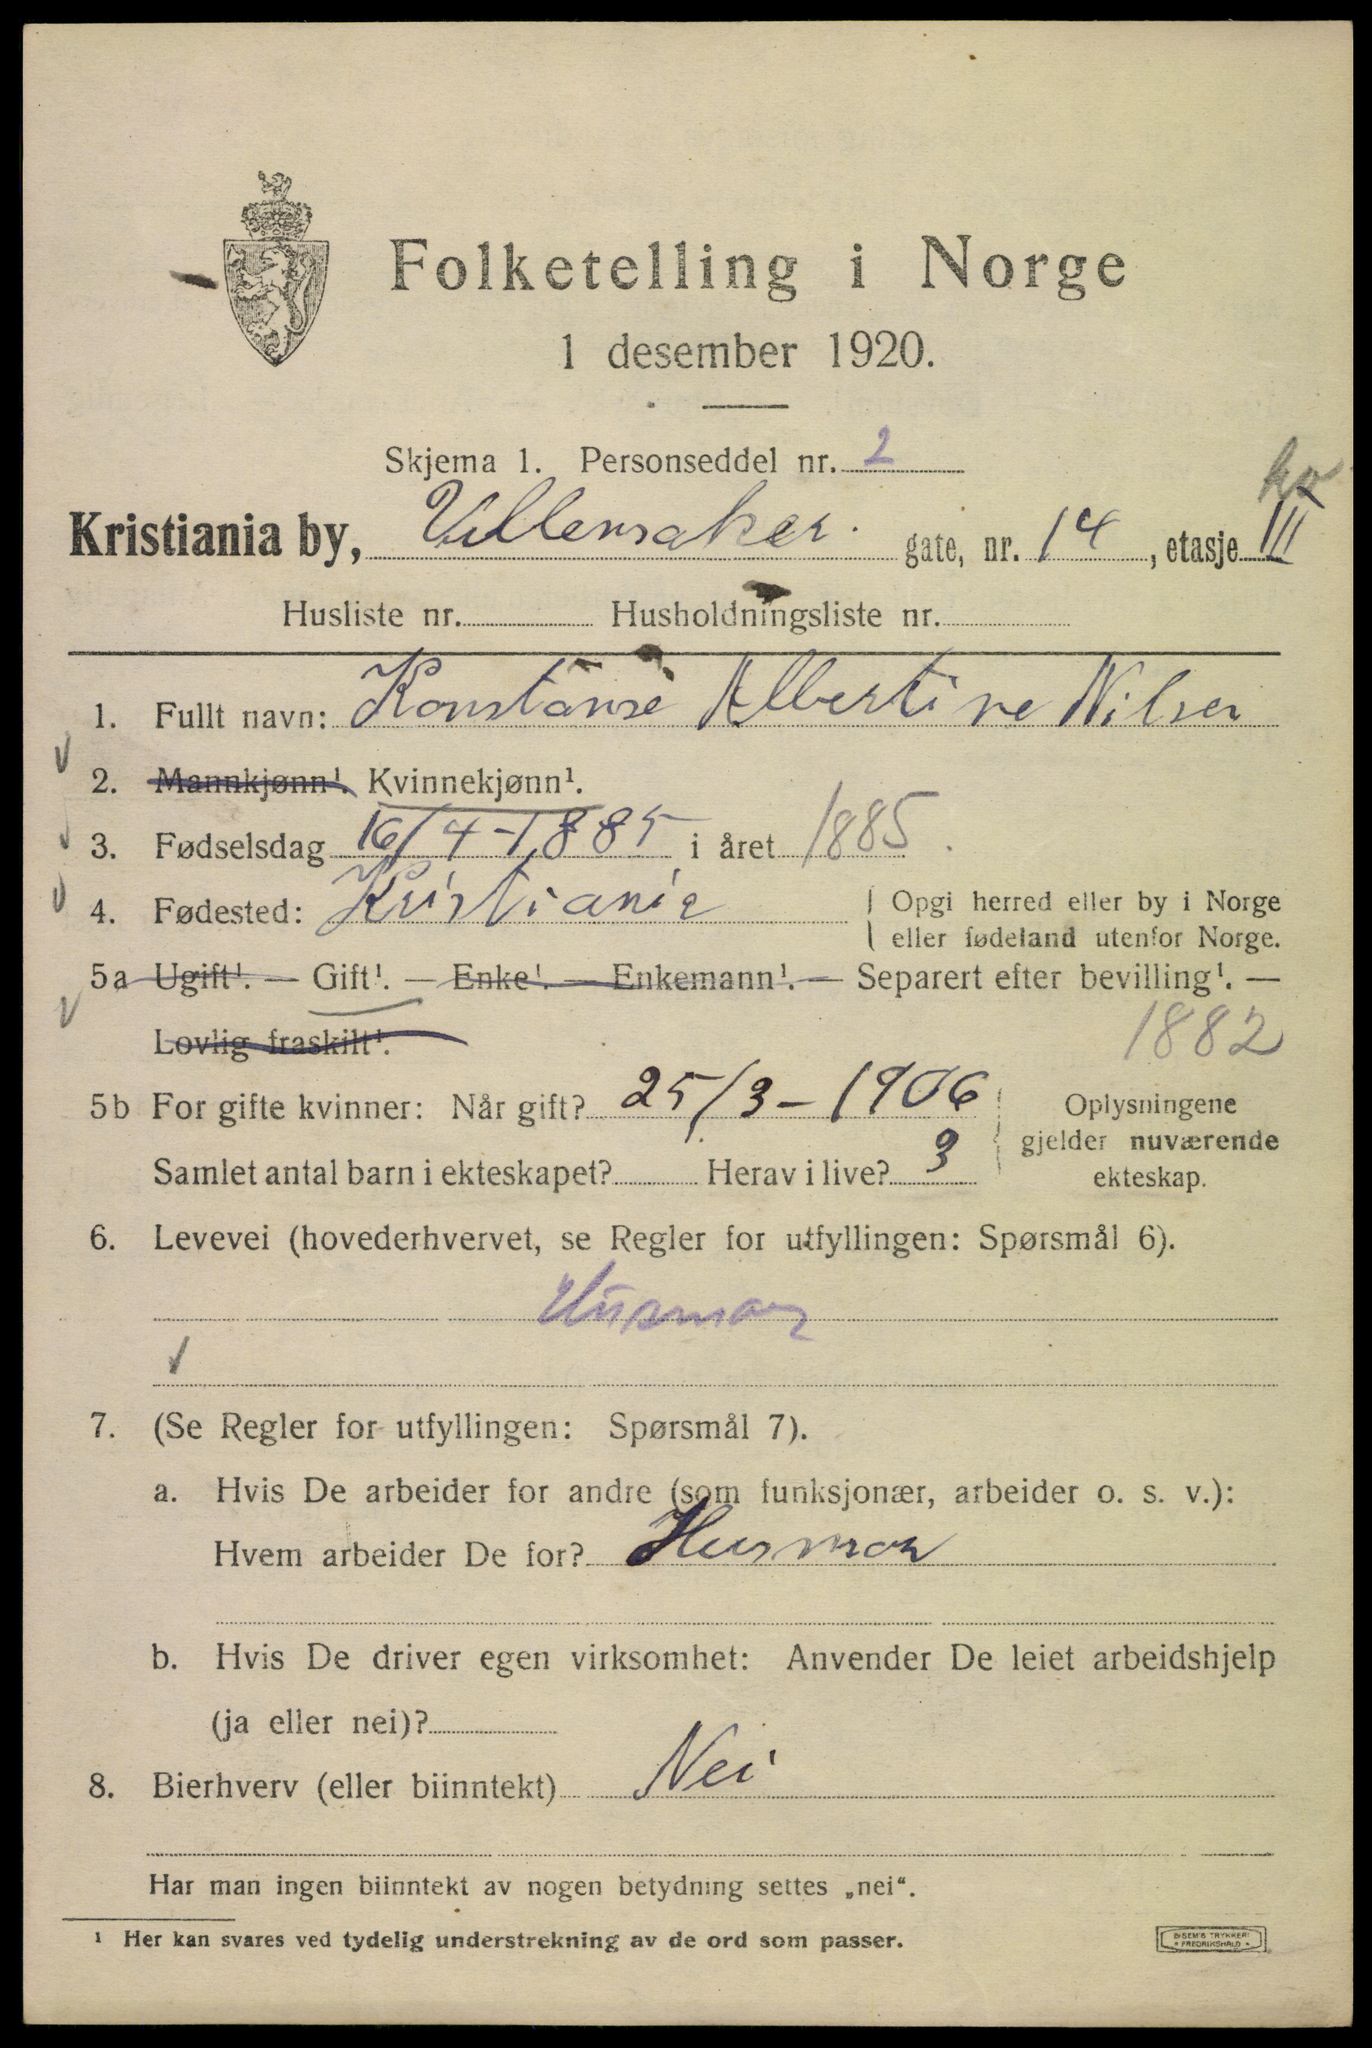 Folketelling i Norge
1 desember 1920.
Skjema 1. Personseddel nr. 2
Kristiania by, Ullensaker gate, nr. 14, etasje III
Husliste nr. Husholdningsliste nr.
1. Fullt navn: Konstanse Albertine Nilsen
2. Mannkjønn¹. Kvinnekjønn¹.
3. Fødselsdag 16/4-1885 i året 1885.
4. Fødested: Kristiania
Opgi herred eller by i Norge
eller fødeland utenfor Norge.
5a Ugift¹. — Gift¹. — Enke¹. — Enkemann¹. — Separert efter bevilling¹. —
Lovlig fraskilt¹.
1882
5b For gifte kvinner: Når gift? 25/3-1906
Samlet antal barn i ekteskapet? Herav i live? 3
Oplysningene
gjelder nuværende
ekteskap.
6. Levevei (hovederhvervet, se Regler for utfyllingen: Spørsmål 6).
Husmor
7. (Se Regler for utfyllingen: Spørsmål 7).
a. Hvis De arbeider for andre (som funksjonær, arbeider o. s. v.):
Hvem arbeider De for? Husmor
b. Hvis De driver egen virksomhet: Anvender De leiet arbeidshjelp
(ja eller nei)?
8. Bierhverv (eller biinntekt) Nei
Har man ingen biinntekt av nogen betydning settes „nei“.
¹ Her kan svares ved tydelig understrekning av de ord som passer.
TRYKKERI
FREDRIKSHALD